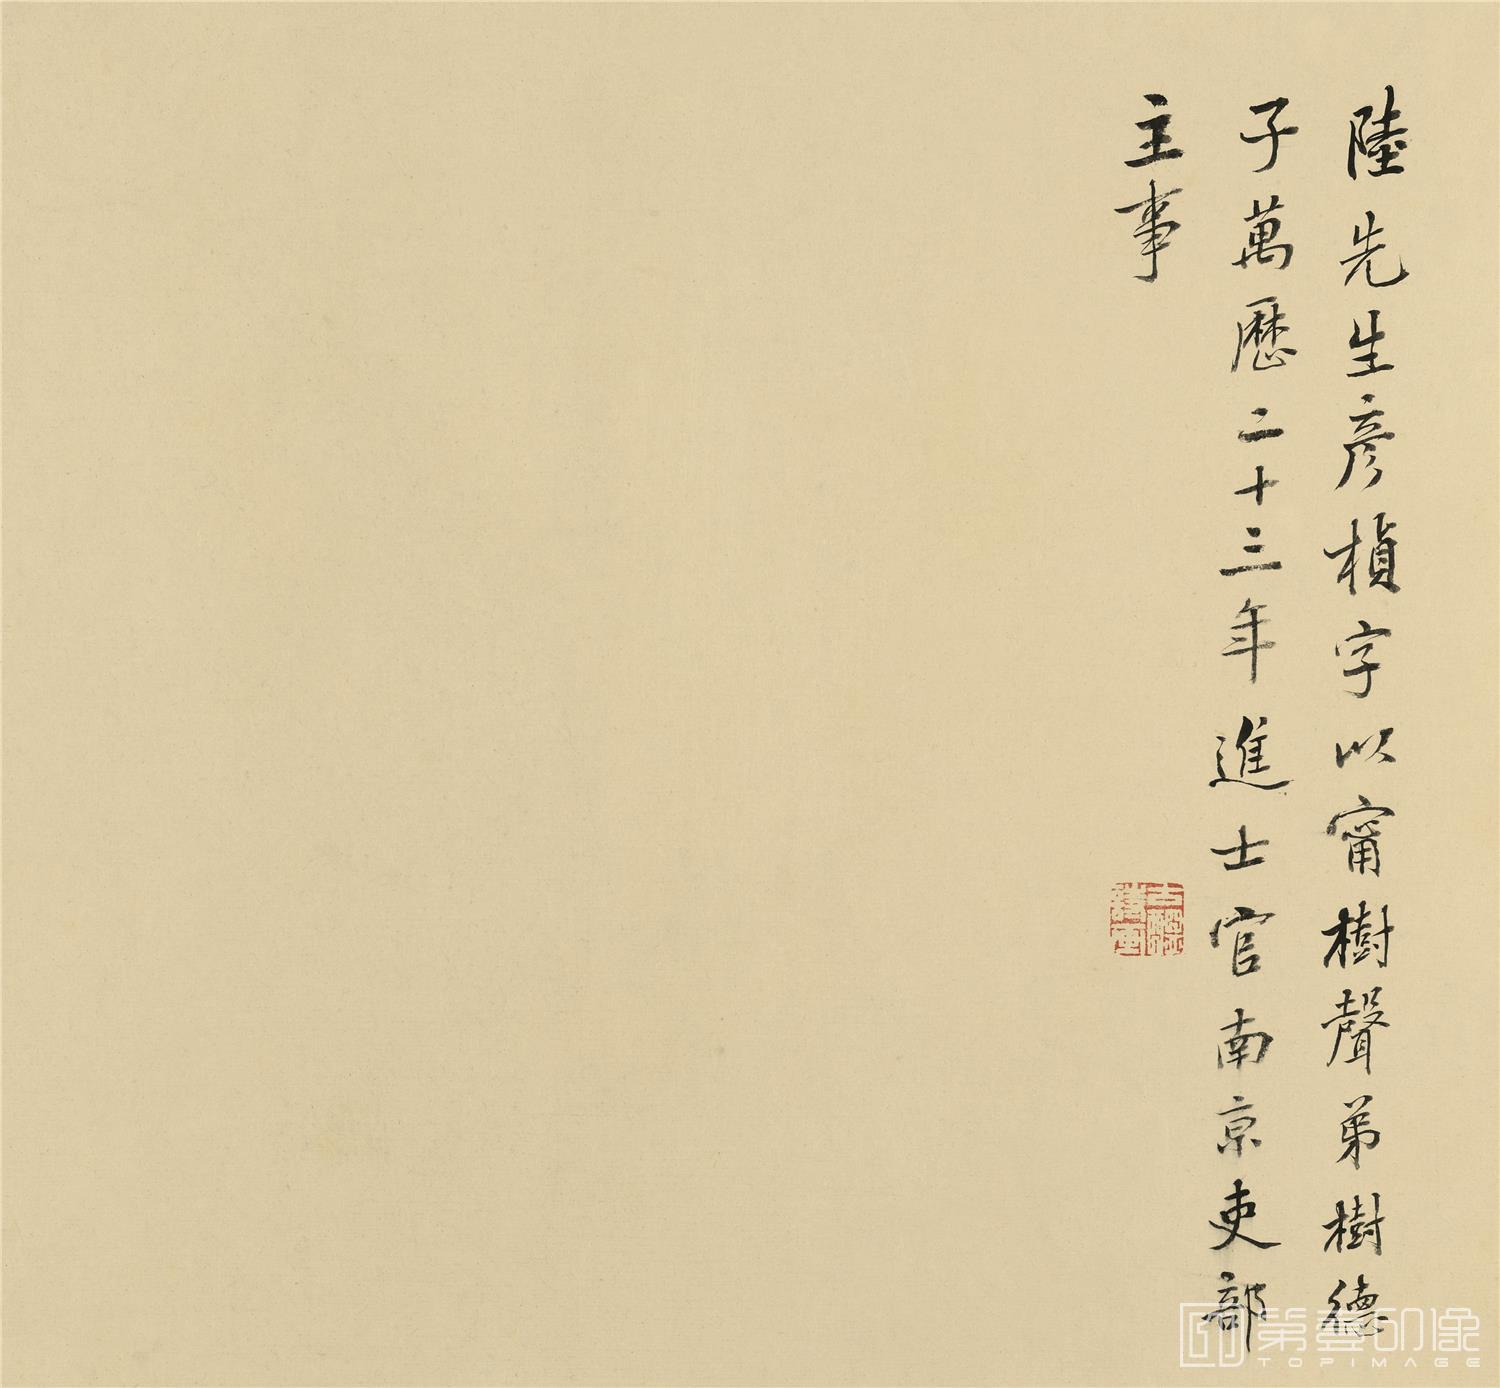 陸先生彥楨字以甯樹聲弟樹德
子萬歷二十三年進士官南京吏部
主事
第壹印像
TOPIMAGE